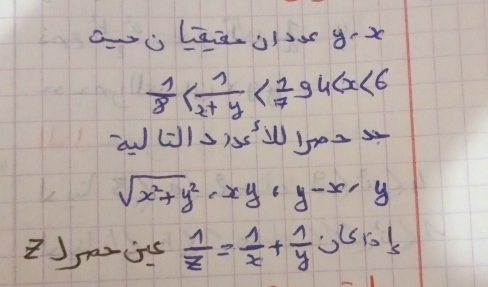 y، x عددان حقيقيان حيث
1/8 < 1/(x+y) < 1/7 و 4<x<6
جد حصرا للأعداد التالية
y، y-x، xy، √(x²+y²)
إذا كان 1/z = 1/x + 1/y عين حصرا لـ z